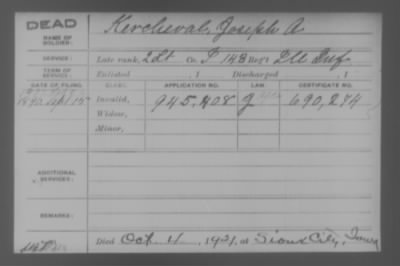 DEAD
NAME OF SOLDIER: Kercheval, Joseph A
SERVICE: Late rank, 2 Lt Co. I 148 Reg't Ill Inf
TERM OF SERVICE: Enlisted , 1 Discharged , 1
DATE OF FILING. CLASS. APPLICATION NO. LAW. CERTIFICATE NO.
1890 Invalid, 945,808 690,274
Widow,
Minor,
ADDITIONAL SERVICES:
REMARKS:
Died Oct 11, 1921, at Sioux City, Iowa